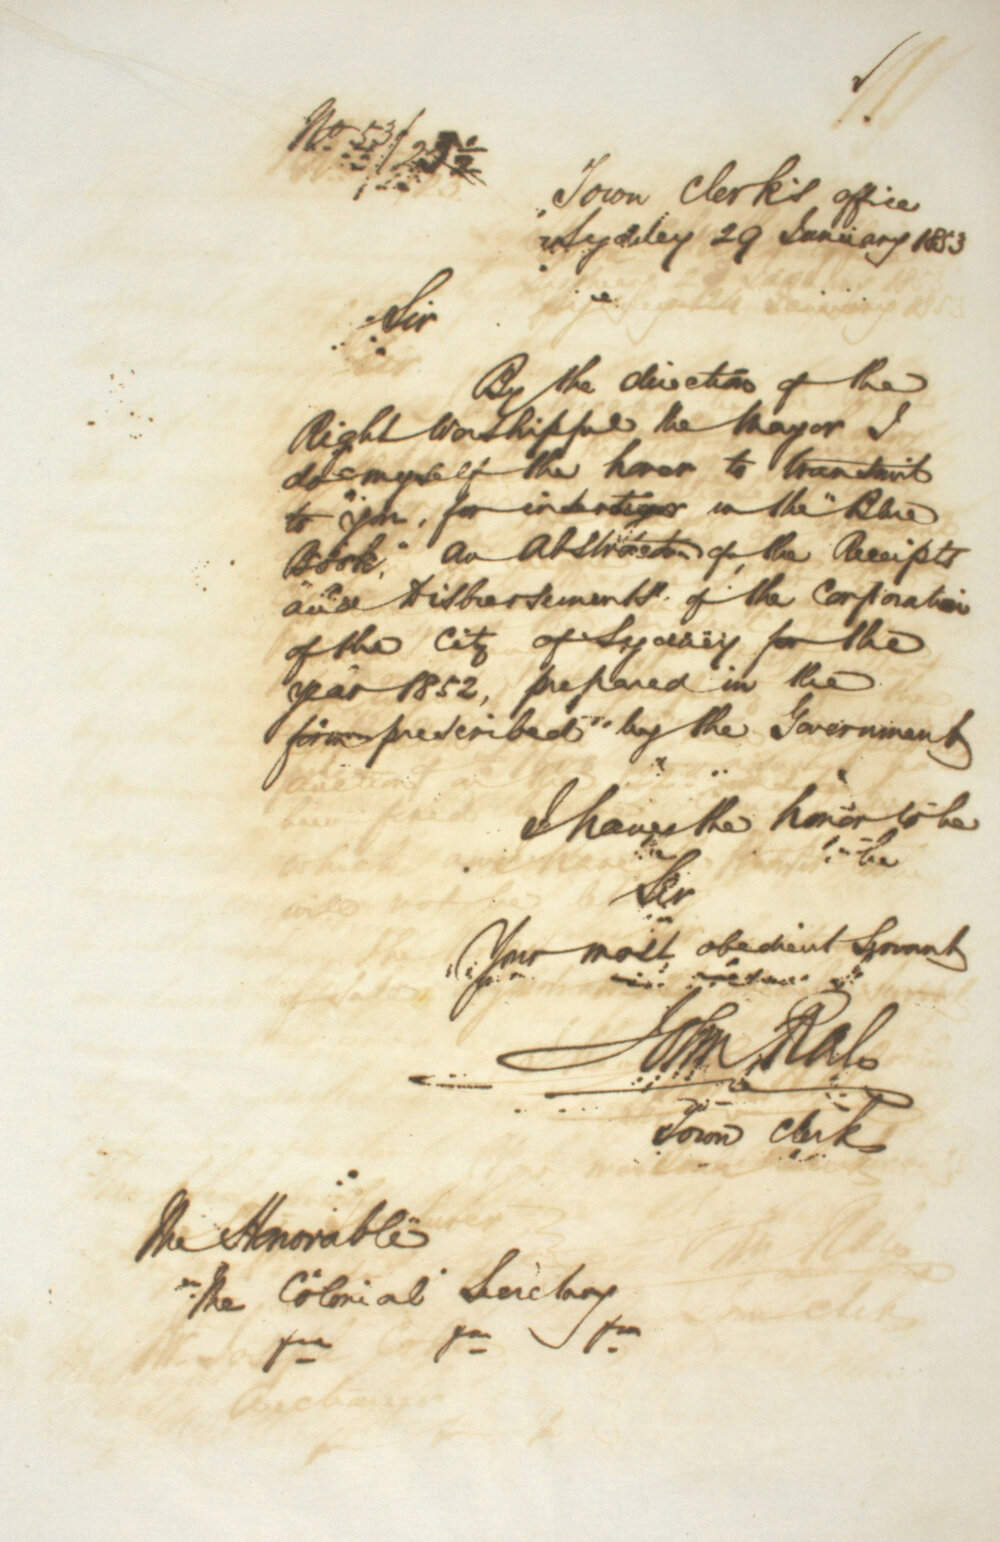 No 53/
Town Clerk's office
Sydney 29 January 1853
Sir
By the direction of the
Right Worshipful the Mayor I
do myself the honor to transmit
to you, for insertion in the "Blue
Book," an Abstract of the Receipts
and Disbursements of the Corporation
of the City of Sydney for the
year 1852, prepared in the
form prescribed by the Government
I have the honor to be
Sir
Your most obedient Servant
John Rae
Town Clerk
The Honorable
The Colonial Secretary